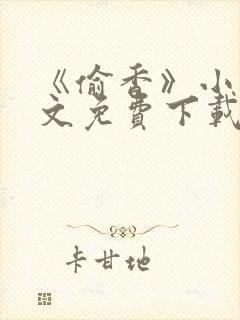 《偷香》小
文免费下载
卡甘地